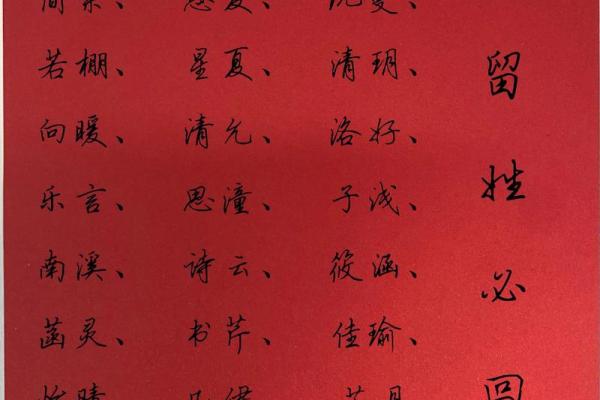 若棚、 星夏、 清玥、
向暖、 清允、 洛好、
乐言、 思潼、 子浅、
南溪、 诗云、 筱涵、
菡灵、 书芹、 佳瑜、
留姓必回